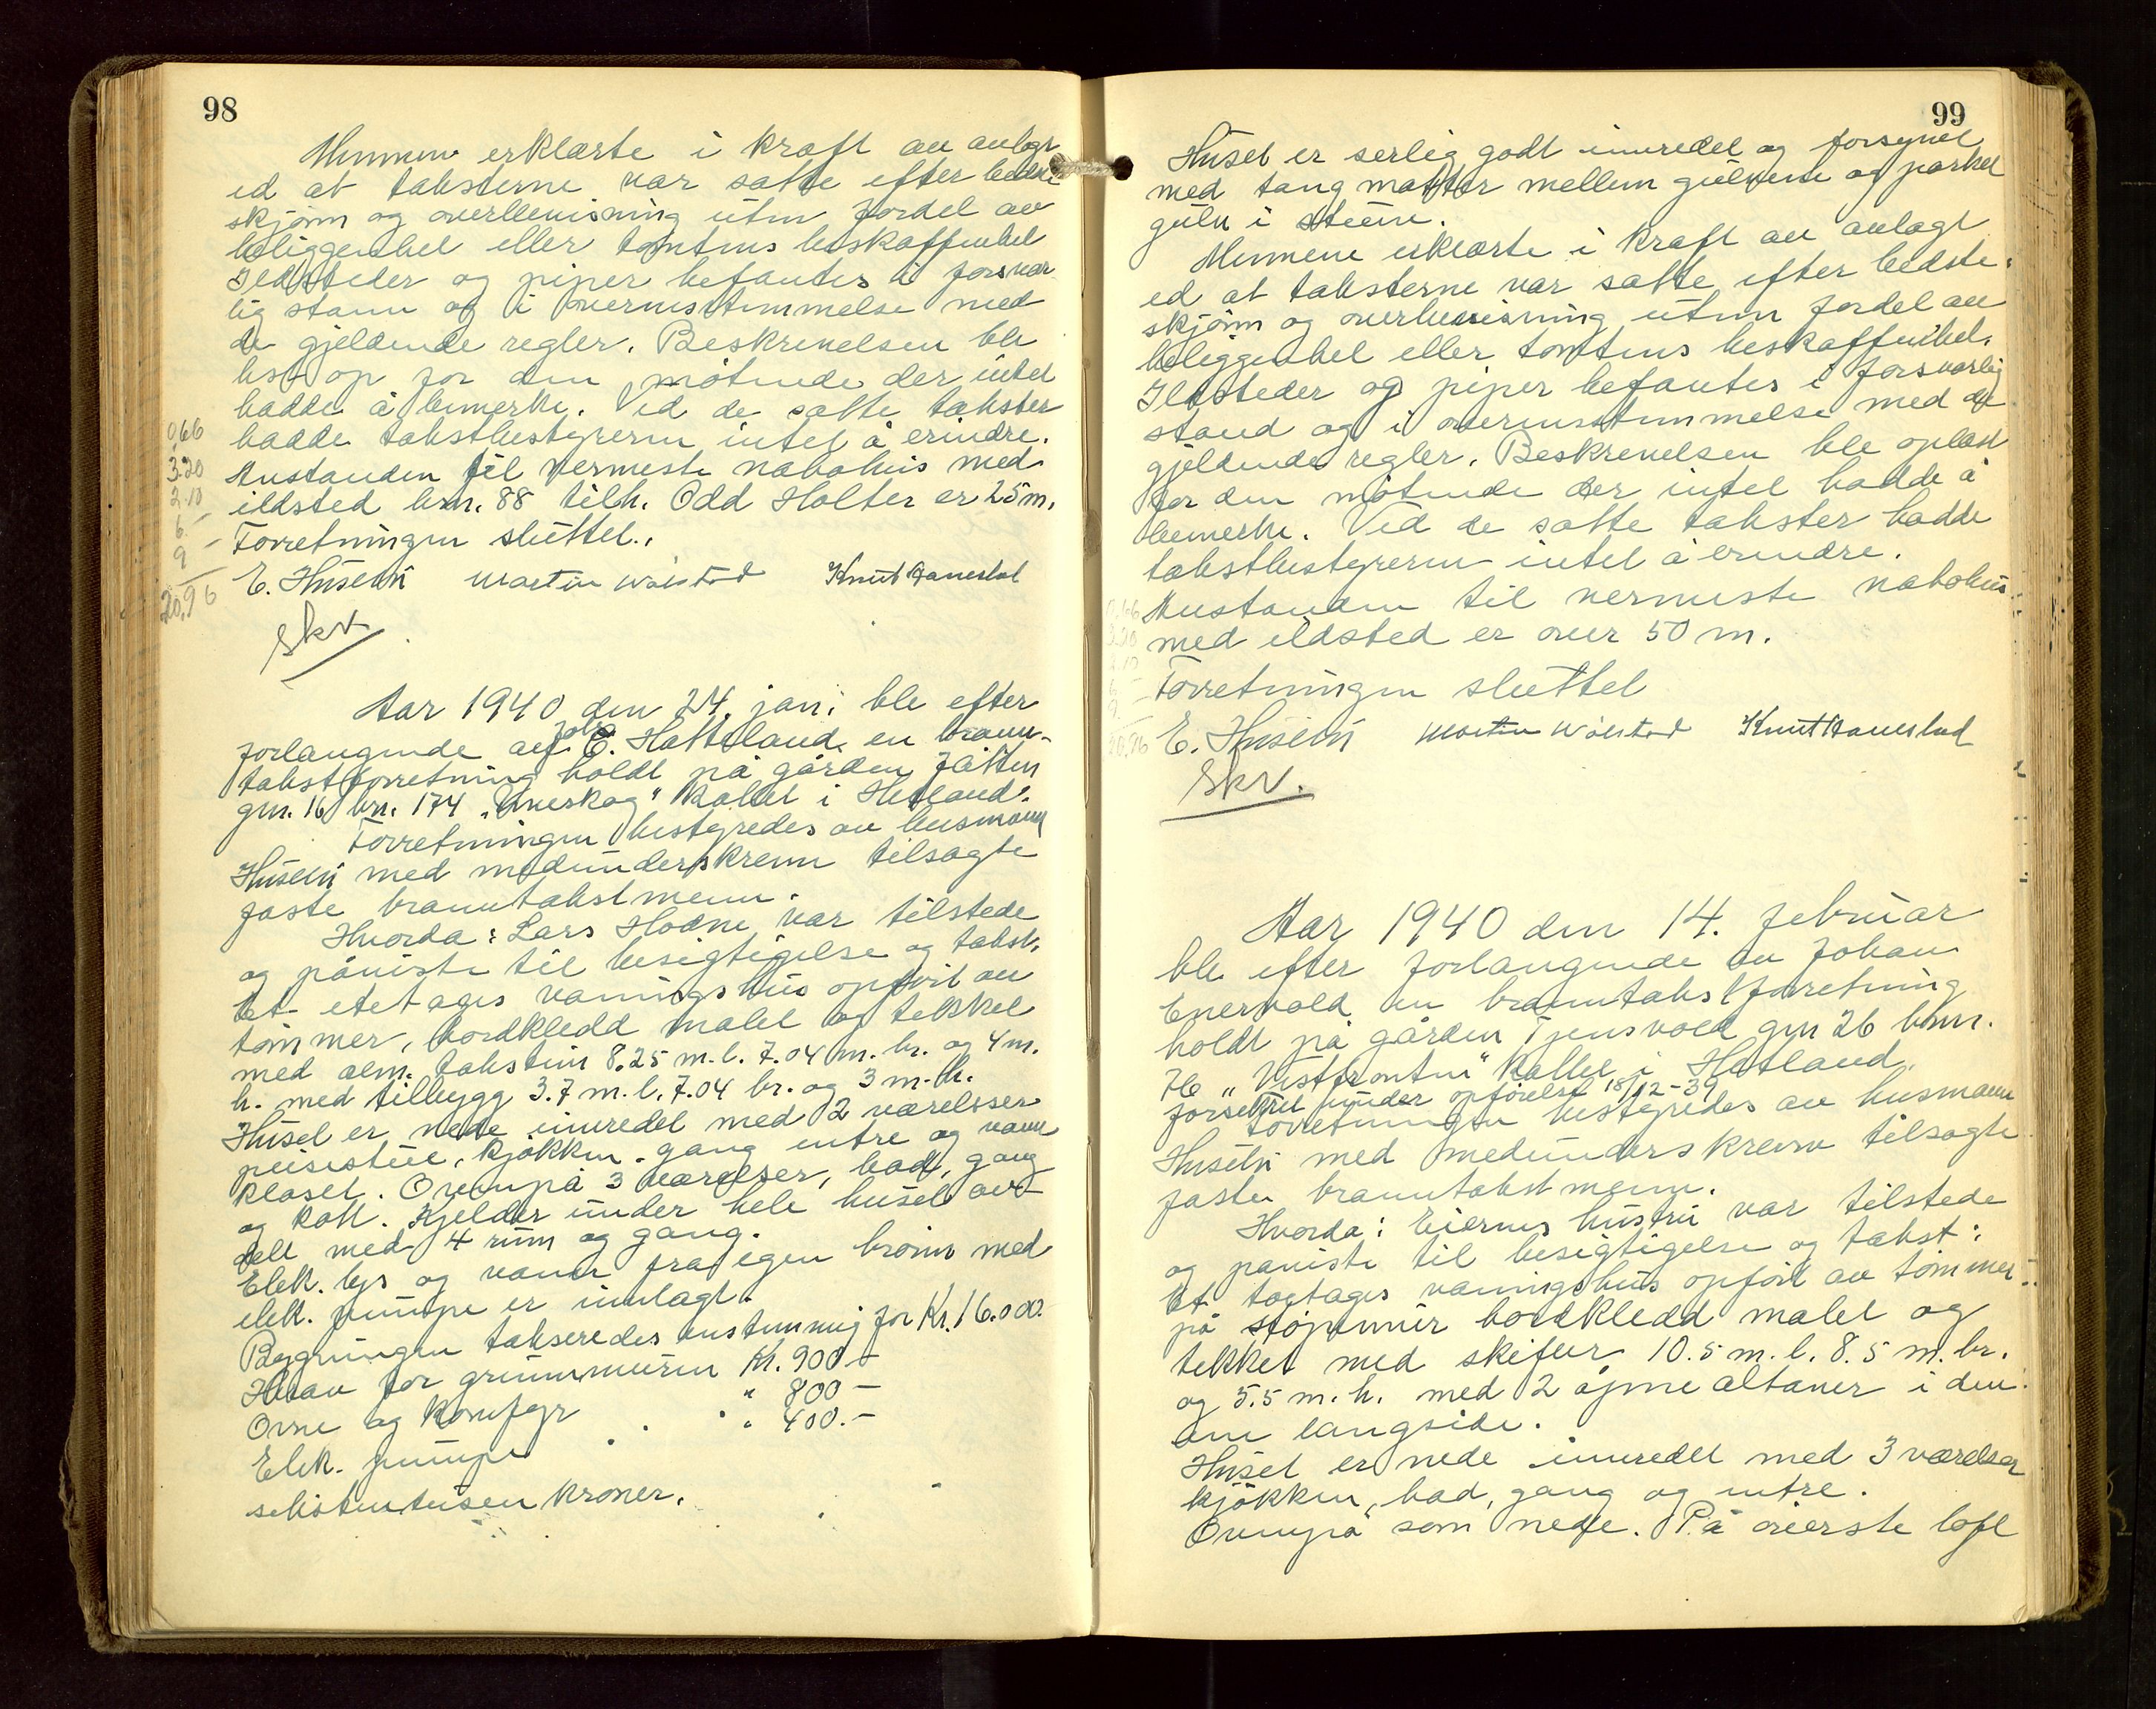 98
Mennene erklærte i kraft av avlagt
ed at taksterne var satte efter bedste
skjönn og overbevisning uten fordel av
beliggenhet eller tomtens beskaffenhet
Ildsteder og piper befantes i forsvar
lig stann og i overensstemmelse med
de gjeldende regler. Beskrivelsen ble
lest op for den mötende der intet
hadde å bemerke. Ved de satte takster
hadde takstbestyreren intet å erindre.
Avstanden til nermeste nabohus med
ildsted brn. 88 tilh. Odd Holter er 25 m.
Forretningen sluttet.
0,66
3.20
2.10
6.-
9 -
20,96
E. Husebö Martin Wölstad Knut Haneslad
Skv.
Aar 1940 den 24. jan. ble efter
forlangende av E. Hatteland en brann-
takstforretning holdt på gården Jåtten
gnr. 16 brn. 174 "Uneskog" kallet i Hetland.
Forretningen bestyredes av lensmann
Husebö med medunderskrevne tilsagte
faste branntakstmenn.
Hvorda: Lars Hodne var tilstede
og påviste til besigtigelse og takst.
Et etetages vaningshus opfört av
tömmer, bordkledd malet og tekket
med alm. takstein 8.25 m.l. 7.04 m. br. og 4 m.
h. med tilbygg 3.7 m.l. 7.04 br. og 3 m.h.
Huset er nede innredet med 2 værelser
peisestue, kjökken, gang entre og vann
kloset. Ovenpå 3 værelser, bad, gang
og kott. Kjelder under hele huset av-
delt med 4 rum og gang.
Elek. lys og vann fra egen brönn med
elek. pumpe er innlagt.
Bygningen takseredes enstemmig for Kr. 16.000.
Herav for grunnmuren Kr. 900 -
Ovne og komfyr " 800 -
Elek. pumpe " 400.-
sekstentusen kroner.
99
Huset er serlig godt innredet og forsynet
med tang matter mellem gulvene og parket
gulv i stuene.
Mennene erklærte i kraft av avlagt
ed at taksterne var satte efter bedste
skjönn og overbevisning uten fordel av
beliggenhet eller tomtens beskaffenhet.
Ildsteder og piper befantes i forsvarlig
stand og i overensstemmelse med de
gjeldende regler. Beskrivelsen ble oplest
for den mötende der intet hadde å
bemerke. Ved de satte takster hadde
takstbestyreren intet å erindre.
Avstanden til nermeste nabohus
med ildsted er over 50 m.
Forretningen sluttet
0,66
3.20
2.10
6.-
9.-
20,96
E. Husebö Martin Wölstad Knut Haneslad
Skv.
Aar 1940 den 14. februar
ble efter forlangende av Johan
Enervold en branntakstforretning
holdt på gården Tjensvold gnr 26 bnr.
76 "Vestfronten" kallet i Hetland.
forsikret under opförelse 18/12-39
Forretningen bestyredes av lensmann
Husebö med medunderskrevne tilsagte
faste branntakstmenn.
Hvorda: Eierens hustru var tilstede
og paviste til besigtigelse og takst:
Et toetages vaningshus opfört av tömmer
på stöpemur bordkledd malet og
tekket med skifer 10.5 m.l. 8.5 m. br.
og 5.5 m.h. med 2 åpne altaner i den
ene langside.
Huset er nede innredet med 3 værelser
kjökken, bad, gang og entre.
Ovenpå som nede. På överste loft